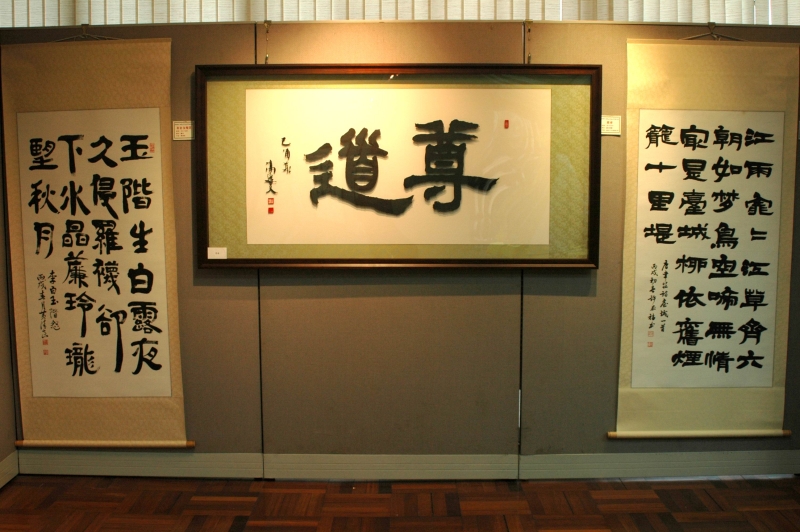 江雨霏〻江草齊六
朝如梦鳥空啼無情
㝡是臺城柳依舊煙
籠十里堤
唐韋莊詩臺城一首
丙戌初春許
尊道
乙酉秋
玉階生白露夜
久侵羅襪卻
下水晶簾玲瓏
望秋月
李白玉階怨
丙戌春月